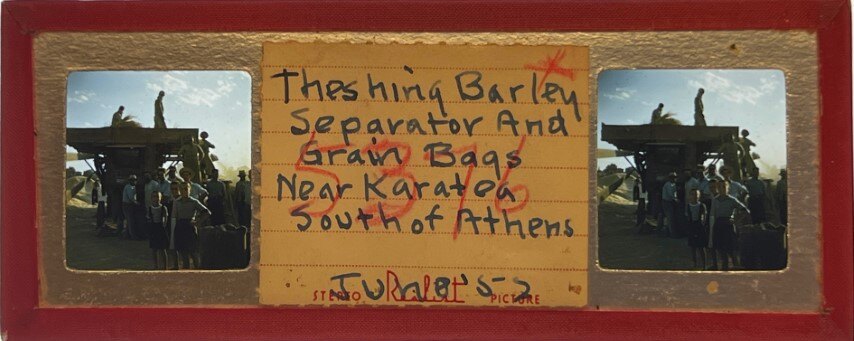 Theshing Barley
Separator And
Grain Bags
Near Karatea
South of Athens
5376
June '55
STEREO Realist PICTURE